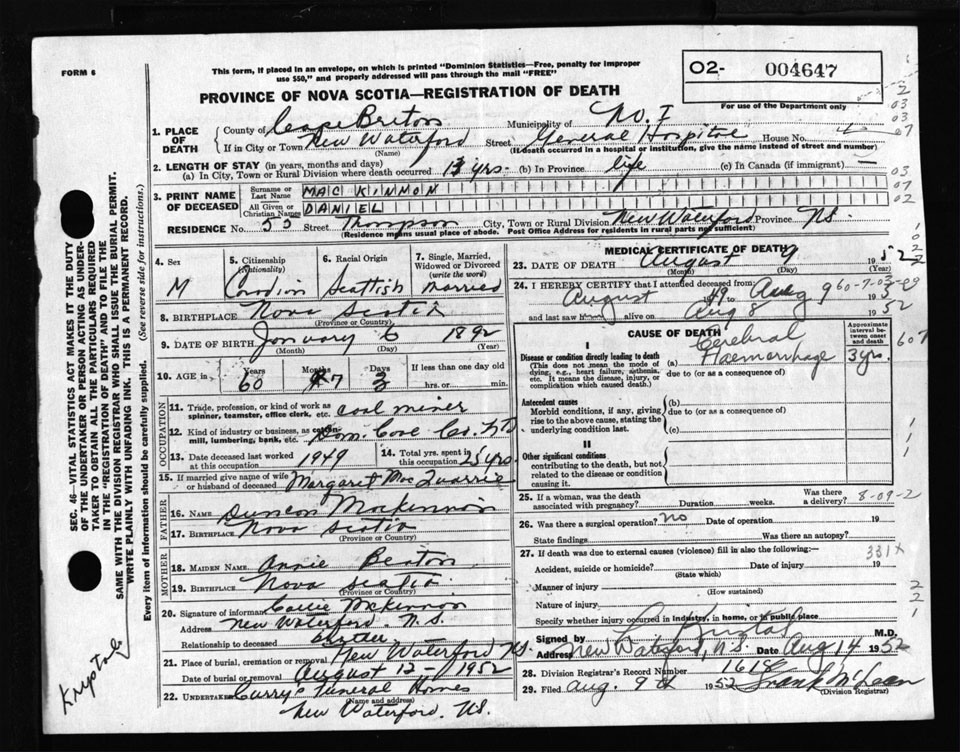 FORM 6
This form, if placed in an envelope, on which is printed "Dominion Statistics—Free, penalty for improper
use $50," and properly addressed will pass through the mail "FREE"
O2- 004647
For use of the Department only
PROVINCE OF NOVA SCOTIA—REGISTRATION OF DEATH
1. PLACE OF DEATH
County of Cape Breton Municipality of No. I
If in City or Town New Waterford Street General Hospital House No.
(Name) (If death occurred in a hospital or institution, give the name instead of street and number)
2. LENGTH OF STAY (in years, months and days)
(a) In City, Town or Rural Division where death occurred 13 yrs. (b) In Province life (c) In Canada (if immigrant) —
3. PRINT NAME OF DECEASED
Surname or Last Name MAC KINNON
All Given or Christian Names DANIEL
RESIDENCE No. 55 Street Thompson City, Town or Rural Division New Waterford Province N.S.
(Residence means usual place of abode. Post Office Address for residents in rural parts not sufficient)
4. Sex
M
5. Citizenship
(Nationality)
Canadian
6. Racial Origin
Scottish
7. Single, Married,
Widowed or Divorced
(write the word)
married
8. BIRTHPLACE Nova Scotia
(Province or Country)
9. DATE OF BIRTH January 6 1892
(Month) (Day) (Year)
10. AGE in Years Months Days If less than one day old
60 7 3 hrs. or min.
OCCUPATION
11. Trade, profession, or kind of work as
spinner, teamster, office clerk, etc. coal miner
12. Kind of industry or business, as cotton-
mill, lumbering, bank, etc. Dom. Coal Co. LTD
13. Date deceased last worked
at this occupation 1949
14. Total yrs. spent in
this occupation 25 yrs
15. If married give name of wife
or husband of deceased Margaret Mac Quarrie
FATHER
16. Name Duncan MacKinnon
17. BIRTHPLACE Nova Scotia
(Province or Country)
MOTHER
18. MAIDEN NAME Annie Beaton
19. BIRTHPLACE Nova Scotia
(Province or Country)
20. Signature of informant McKinnon
Address New Waterford. N.S.
Relationship to deceased
21. Place of burial, cremation or removal New Waterford N.S.
Date of burial or removal August 12 - 1952
22. UNDERTAKER Curry's Funeral Homes
(Name and address)
New Waterford. N.S.
MEDICAL CERTIFICATE OF DEATH
23. DATE OF DEATH August 9 1952
(Month) (Day) (Year)
24. I HEREBY CERTIFY that I attended deceased from
August 19 to Aug 9 1952
and last saw him alive on Aug 8 1952
60-7-03-09
CAUSE OF DEATH
Approximate interval between onset and death
I
Disease or condition directly leading to death
(This does not mean the mode of dying, e.g., heart failure, asthenia, etc. It means the disease, injury, or complication which caused death.)
(a) Cerebral Haemorrhage 3 yrs.
due to (or as a consequence of)
607
Antecedent causes
Morbid conditions, if any, giving rise to the above cause, stating the underlying condition last.
(b)
due to (or as a consequence of)
(c)
II
Other significant conditions
contributing to the death, but not related to the disease or condition causing it.
25. If a woman, was the death
associated with pregnancy? Duration weeks. Was there a delivery? 8-09-2
26. Was there a surgical operation? no Date of operation 19
State findings Was there an autopsy?
27. If death was due to external causes (violence) fill in also the following:— 331X
Accident, suicide or homicide? Date of injury 19
(State which)
Manner of injury
(How sustained)
Nature of injury
Specify whether injury occurred in industry, in home, or in public place
Signed by M.D.
Address New Waterford, N.S. Date Aug 14 1952
28. Division Registrar's Record Number 1618
29. Filed Aug. 9th 1952 Frank McLean
(Division Registrar)
SEC. 46—VITAL STATISTICS ACT MAKES IT THE DUTY
OF THE UNDERTAKER OR PERSON ACTING AS UNDER-
TAKER TO OBTAIN ALL THE PARTICULARS REQUIRED
IN THE "REGISTRATION OF DEATH" AND TO FILE THE
SAME WITH THE DIVISION REGISTRAR WHO SHALL ISSUE THE BURIAL PERMIT.
WRITE PLAINLY WITH UNFADING INK. THIS IS A PERMANENT RECORD.
Every item of information should be carefully supplied. (See reverse side for instructions.)